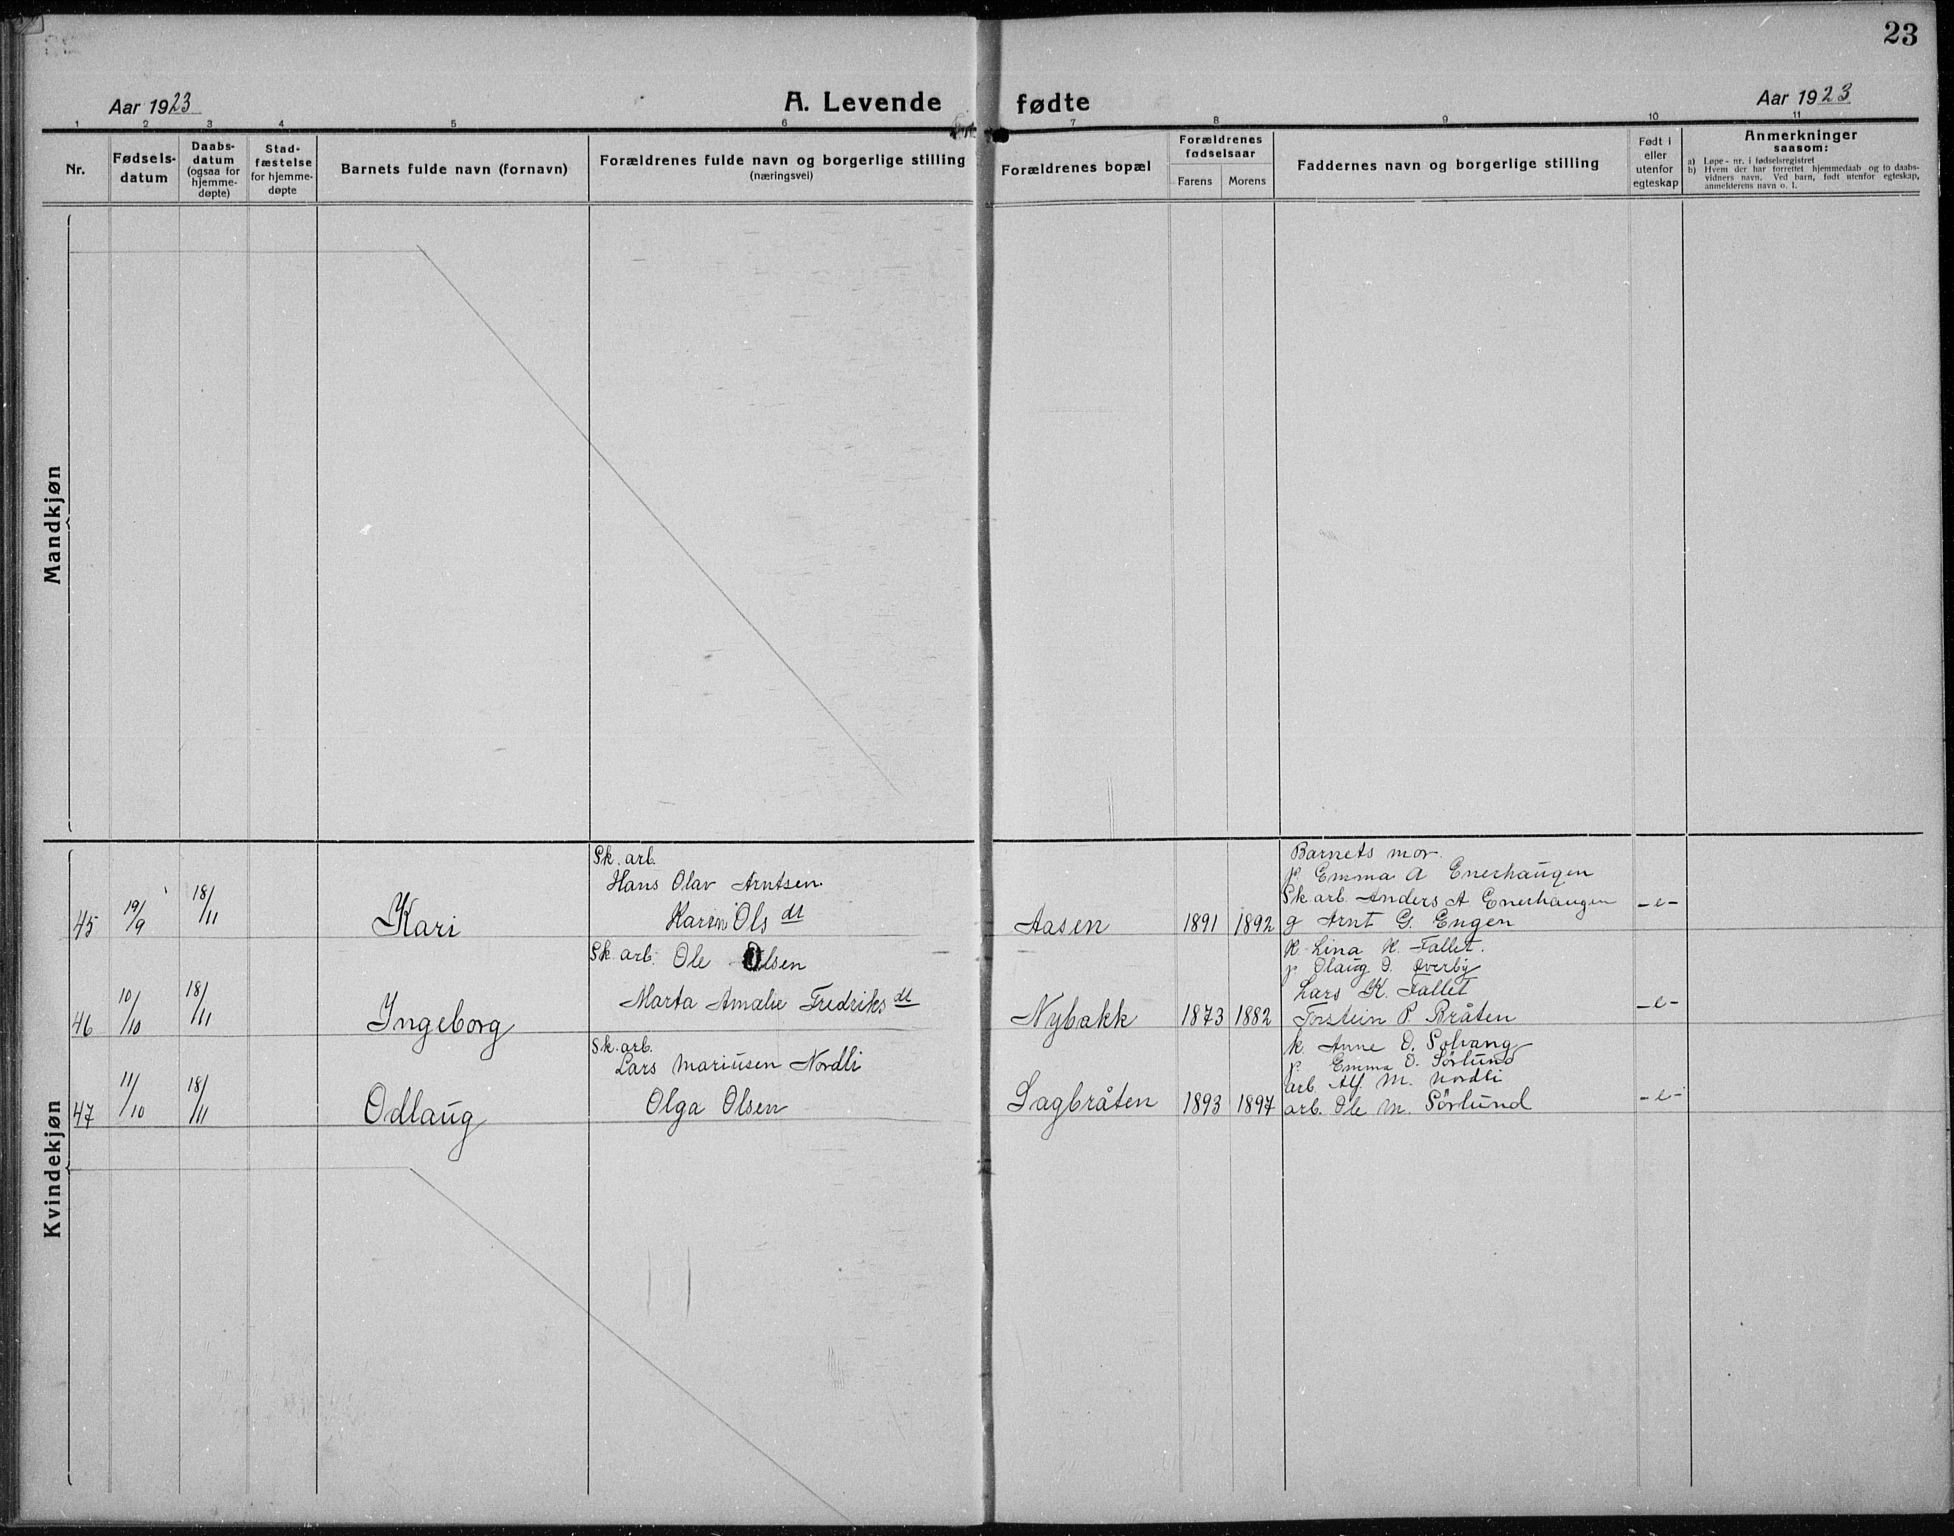 23
Aar 1923
A. Levende fødte
Aar 1923
1 2 3 4 5 6 7 8 9 10 11
Nr.
Fødsels-
datum
Daabs-
datum
(ogsaa for
hjemme-
døpte)
Stad-
fæstelse
for hjemme-
døpte
Barnets fulde navn (fornavn)
Forældrenes fulde navn og borgerlige stilling
(næringsvei)
Forældrenes bopæl
Forældrenes
fødselsaar
Farens Morens
Faddernes navn og borgerlige stilling
Født i
eller
utenfor
egteskap
Anmerkninger
saasom:
a) Løpe-nr. i fødselsregistret
b) Hvem der har forrettet hjemmedaab og to daabs-
vidners navn. Ved barn, født utenfor egteskap,
anmelderens navn o. l.
Mandkjøn
Kvindekjøn
45 19/9 18/11 Kari
Sk. arb.
Hans Olav Arntsen
Karen Olsdt
Aasen 1891 1892
Barnets mor.
p Emma A Enerhaugen
Sk arb. Anders A Enerhaugen
g Arnt G. Engen
-e-
46 10/10 18/11 Ingeborg
Sk. arb. Ole Olsen
Marta Amalie Fredriksdt
Nybakk 1873 1882
K Lina K. Fallet.
p Olaug O. Øverby
Lars K. Fallet
Torstein P. Bråten
-e-
47 11/10 18/11 Odlaug
Sk. arb.
Lars Mariusen Nordli
Olga Olsen
Sagbråten 1893 1897
k. Anne O. Solvang
p Emma O. Sørlund
arb Alf M. Nordli
arb. Ole M. Sørlund
-e-